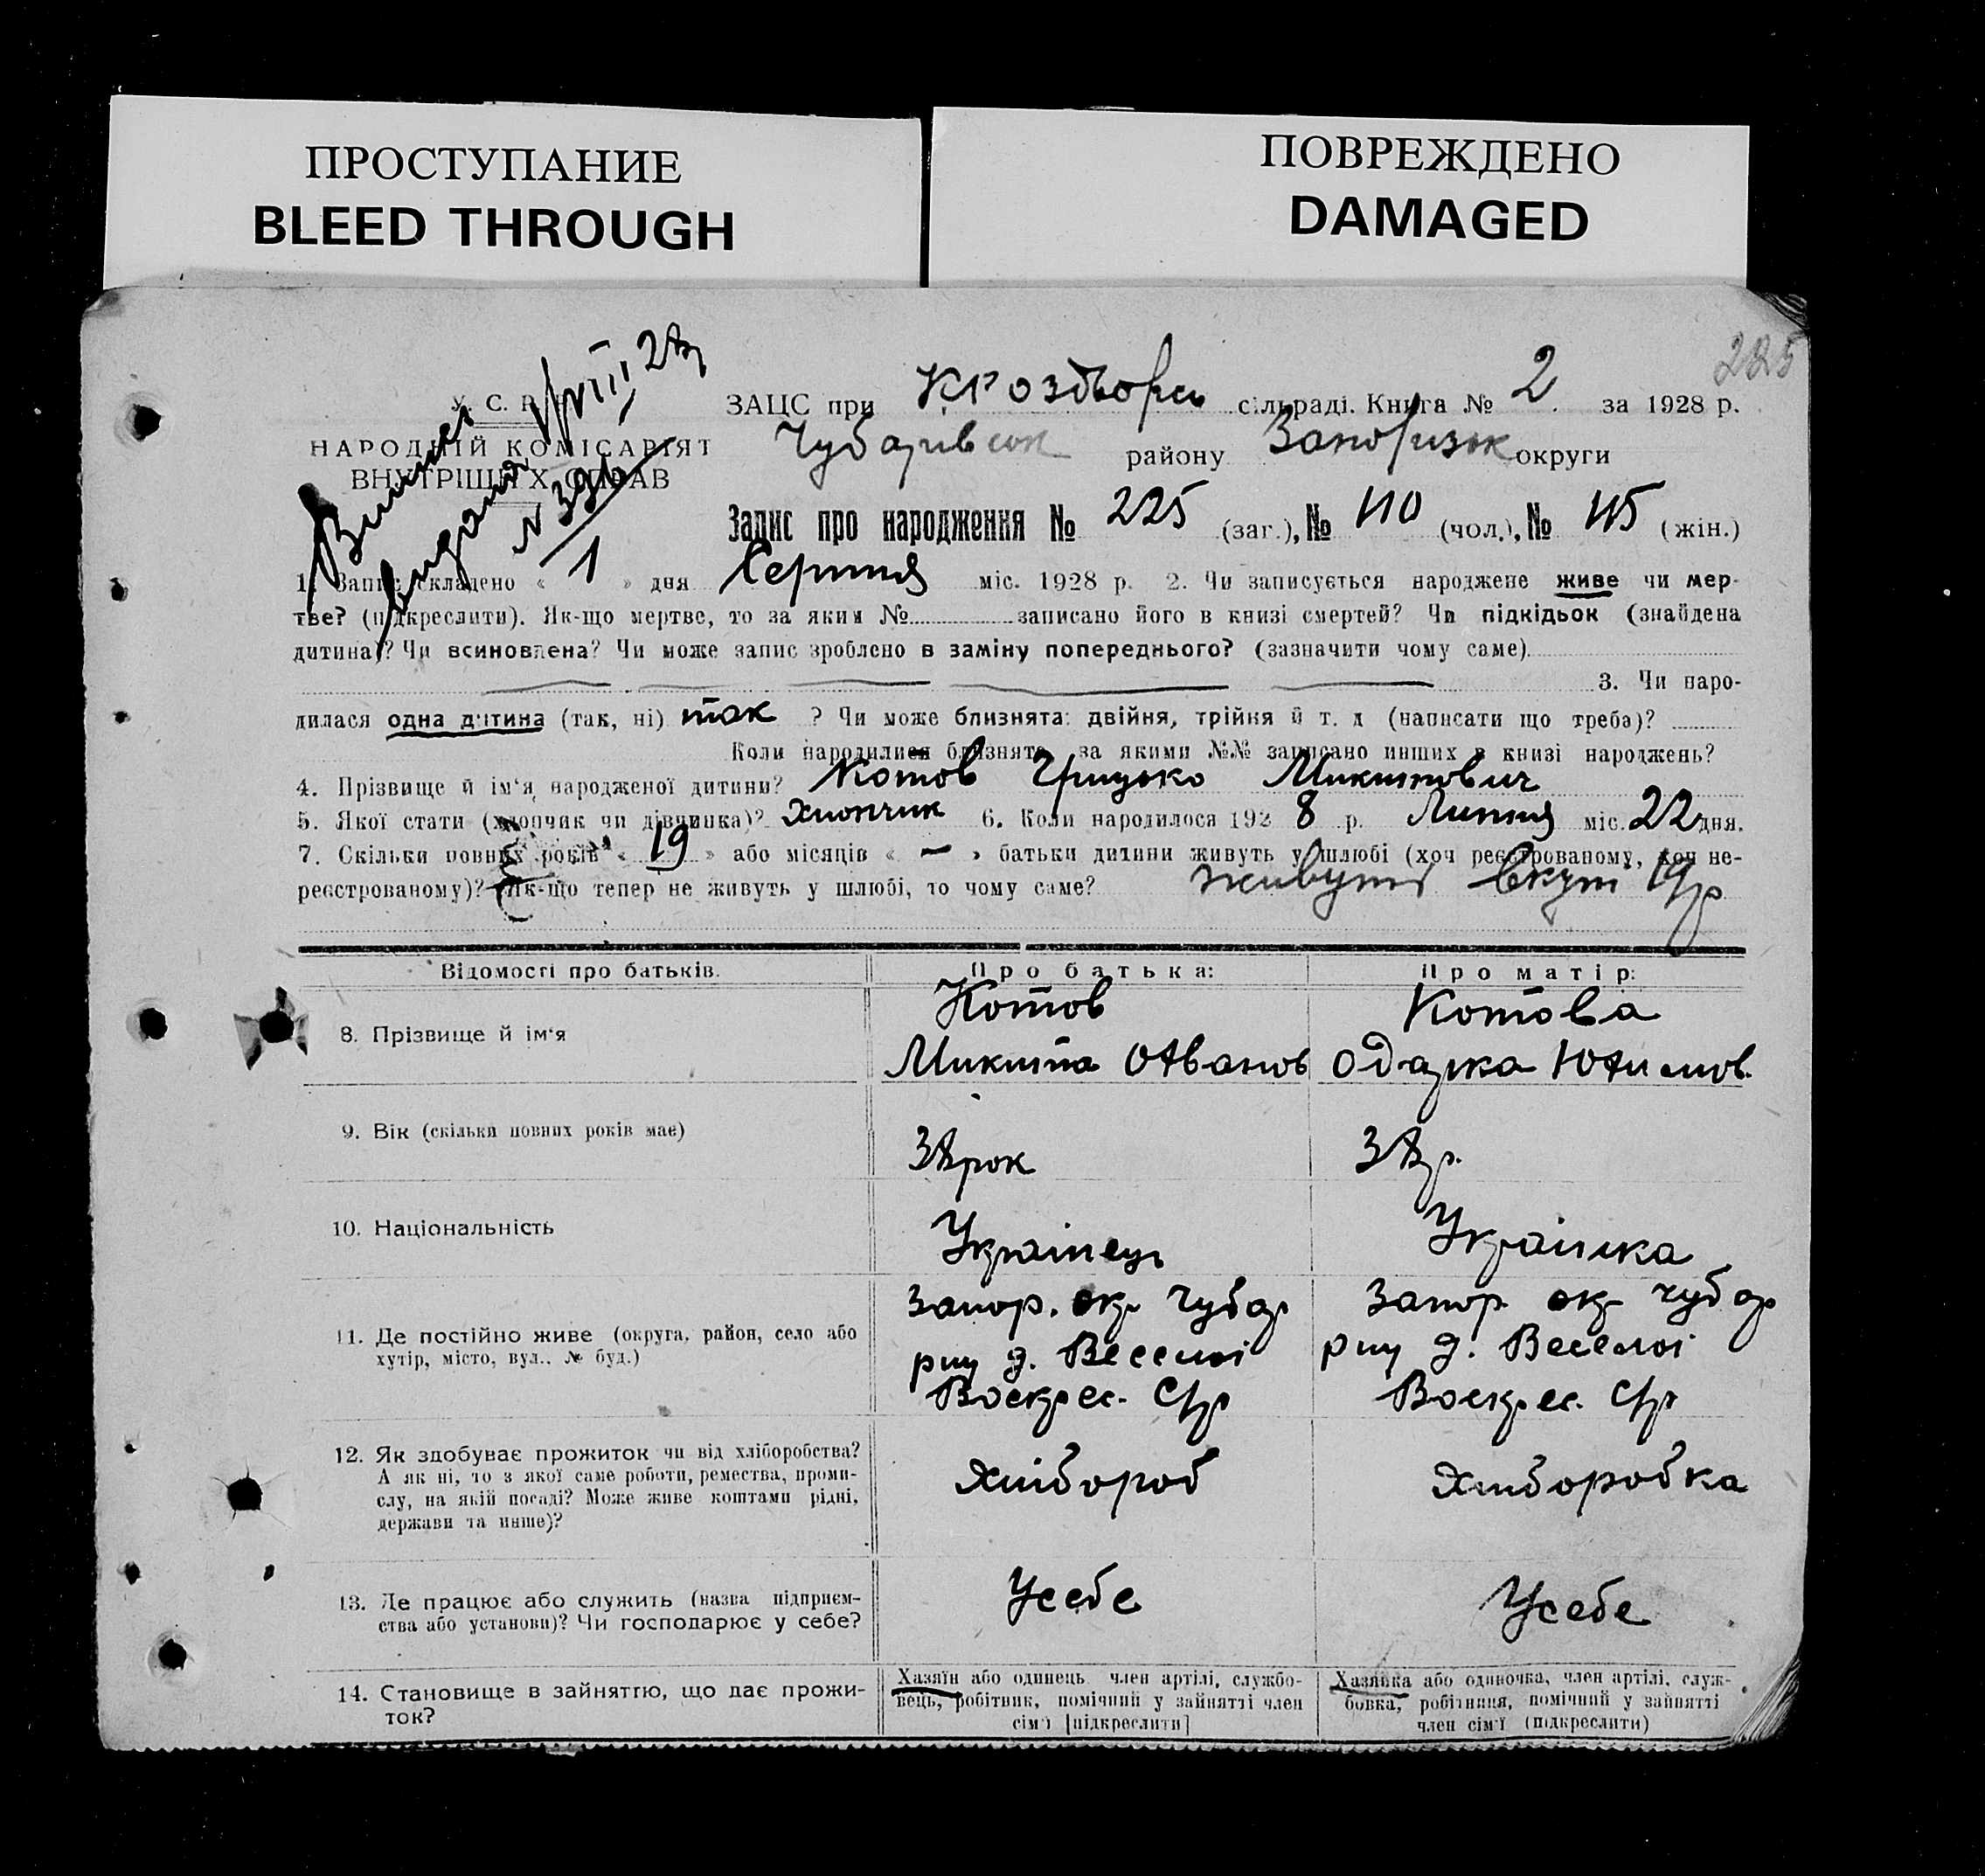 ПРОСТУПАНИЕ
BLEED THROUGH
ПОВРЕЖДЕНО
DAMAGED
225
У. С. Р. Р.
НАРОДНІЙ КОМІСАРІЯТ
ВНУТРІШНІХ СПРАВ
Випис
видана
№ 396
1/VIII 28р
ЗАЦС при сільраді. Книга № 2 за 1928 р.
Чубарівськ району Запорізьк округи
Запис про народження № 225 (заг.), № 110 (чол.), № 115 (жін.)
1. Запис складено « 1 » дня Серпня міс. 1928 р. 2. Чи записується народжене живе чи мер-
тве? (підкреслити). Як-що мертве, то за яким № записано його в книзі смертей? Чи підкідьок (знайдена
дитина)? Чи всиновлена? Чи може запис зроблено в заміну попереднього? (зазначити чому саме)
3. Чи наро-
дилася одна дитина (так, ні) так ? Чи може близнята: двійня, трійня й т. д (написати що треба)?
Коли народилися близнята, за якими №№ записано инших в книзі народжень?
4. Прізвище й ім'я народженої дитини? Котов Грицько Микитович
5. Якої стати (хлопчик чи дівчинка)? Хлопчик 6. Коли народилося 192 8 р. Липня міс. 22 дня.
7. Скільки повних років « 19 » або місяців « — » батьки дитини живуть у шлюбі (хоч реєстрованому, хоч не-
реєстрованому)? Як-що тепер не живуть у шлюбі, то чому саме? живуть вкупі 19 р
Відомості про батьків. Про батька: Про матір:
8. Прізвище й ім'я
Котов
Микита
Котова
Одарка
9. Вік (скільки повних років має)
38 рок
38 р.
10. Національність
Українець
Українка
11. Де постійно живе (округа, район, село або
хутір, місто, вул., № буд.)
Запор. окр Чубар
рну д. Веселої
Воскрес. С/р
Запор. окр Чубар
рну д. Веселої
Воскрес. С/р
12. Як здобуває прожиток чи від хліборобства?
А як ні, то з якої саме роботи, ремества, проми-
слу, на якій посаді? Може живе коштами рідні,
держави та инше)?
Хлібороб
Хліборобка
13. Де працює або служить (назва підприєм-
ства або установи)? Чи господарює у себе?
Усебе
Усебе
14. Становище в зайняттю, що дає прожи-
ток?
Хазяїн або одинець, член артілі, службо-
вець, робітник, помічний у зайнятті член
сім'ї [підкреслити]
Хазяйка або одиночка, член артілі, служ-
бовка, робітниця, помічний у зайнятті
член сім'ї (підкреслити)